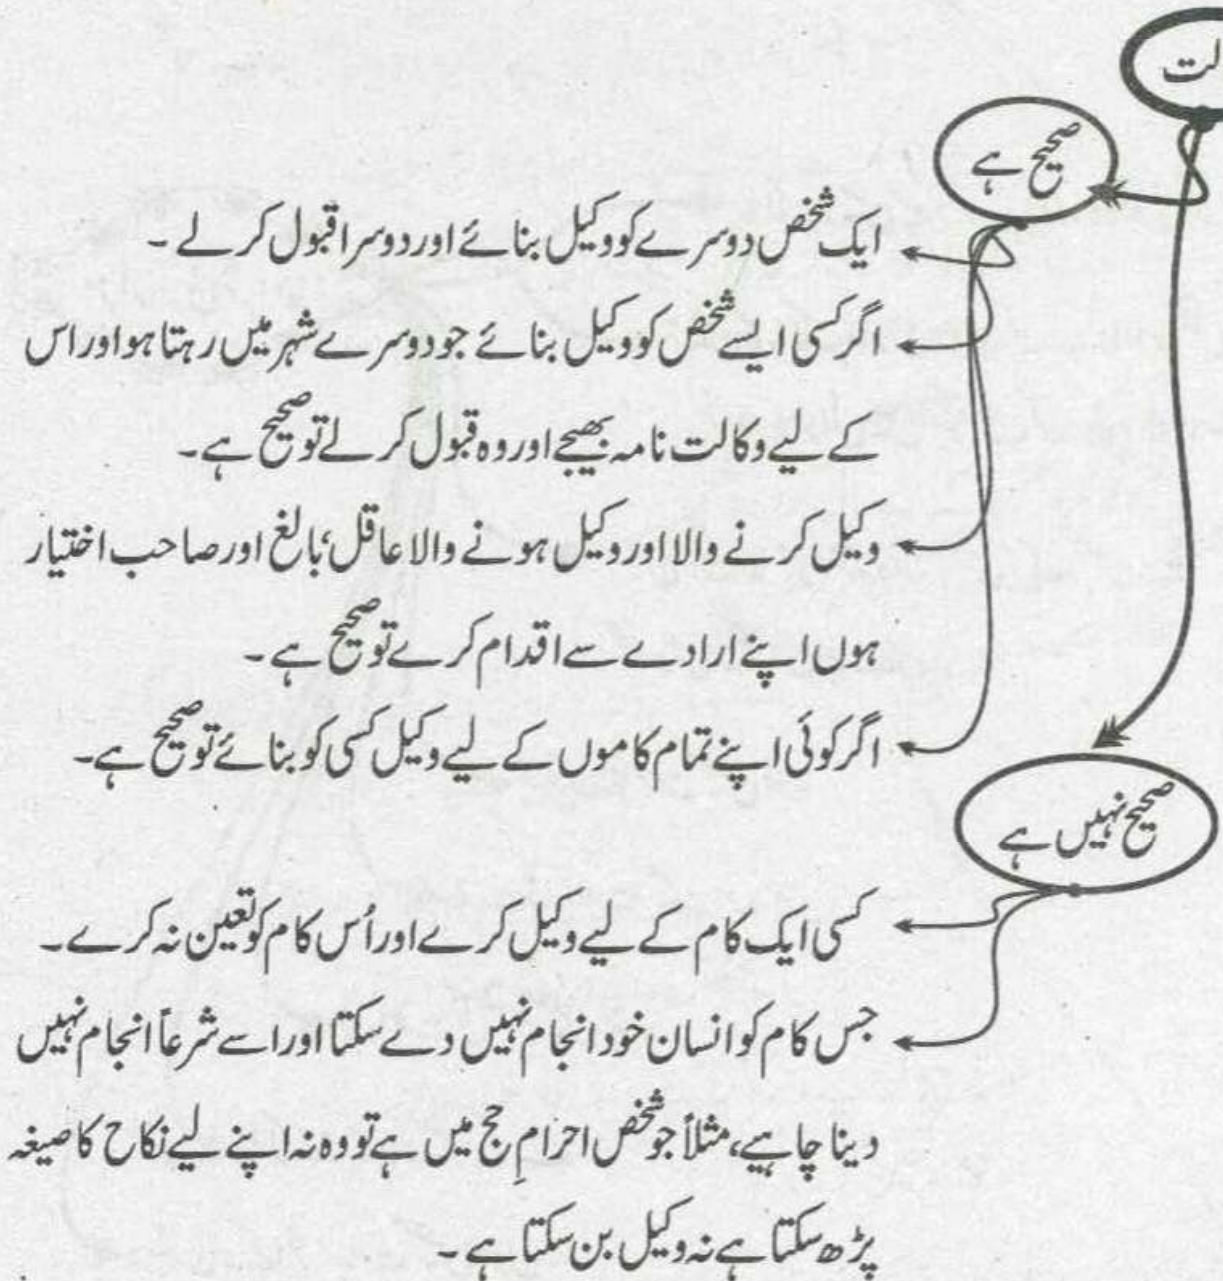 لت
صحیح ہے
ایک شخص دوسرے کو وکیل بنائے اور دوسرا قبول کرلے ۔
اگر کسی ایسے شخص کو وکیل بنائے جو دوسرے شہر میں رہتا ہو اور اس
کے لیے وکالت نامہ بھیجے اور وہ قبول کرلے تو صحیح ہے۔
وکیل کرنے والا اور وکیل ہونے والا عاقل، بالغ اور صاحب اختیار
ہوں اپنے ارادے سے اقدام کرے تو صحیح ہے۔
اگر کوئی اپنے تمام کاموں کے لیے وکیل کسی کو بنائے تو صحیح ہے۔
صحیح نہیں ہے
کسی ایک کام کے لیے وکیل کرے اور اُس کام کو تعین نہ کرے۔
جس کام کو انسان خود انجام نہیں دے سکتا اور اسے شرعاً انجام نہیں
دینا چاہیے، مثلاً جو شخص احرامِ حج میں ہے تو وہ نہ اپنے لیے نکاح کا صیغہ
پڑھ سکتا ہے نہ وکیل بن سکتا ہے ۔